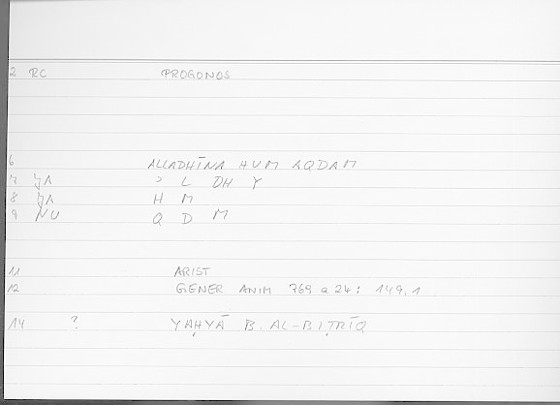 2 RC PROGONOS
6 ALLADHĪNA HUM AQDAM
7 JA ʾ L DH Y
8 JA H M
9 NU Q D M
11 ARIST
12 GENER ANIM 769 a 24: 149,1
14 ? YAḤYĀ B. AL-BIṬRĪQ